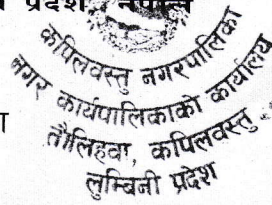 प्रदेश, नेपाल
कपिलवस्तु नगरपालिका
नगर कार्यपालिकाको कार्यालय
तौलिहवा, कपिलवस्तु
लुम्बिनी प्रदेश